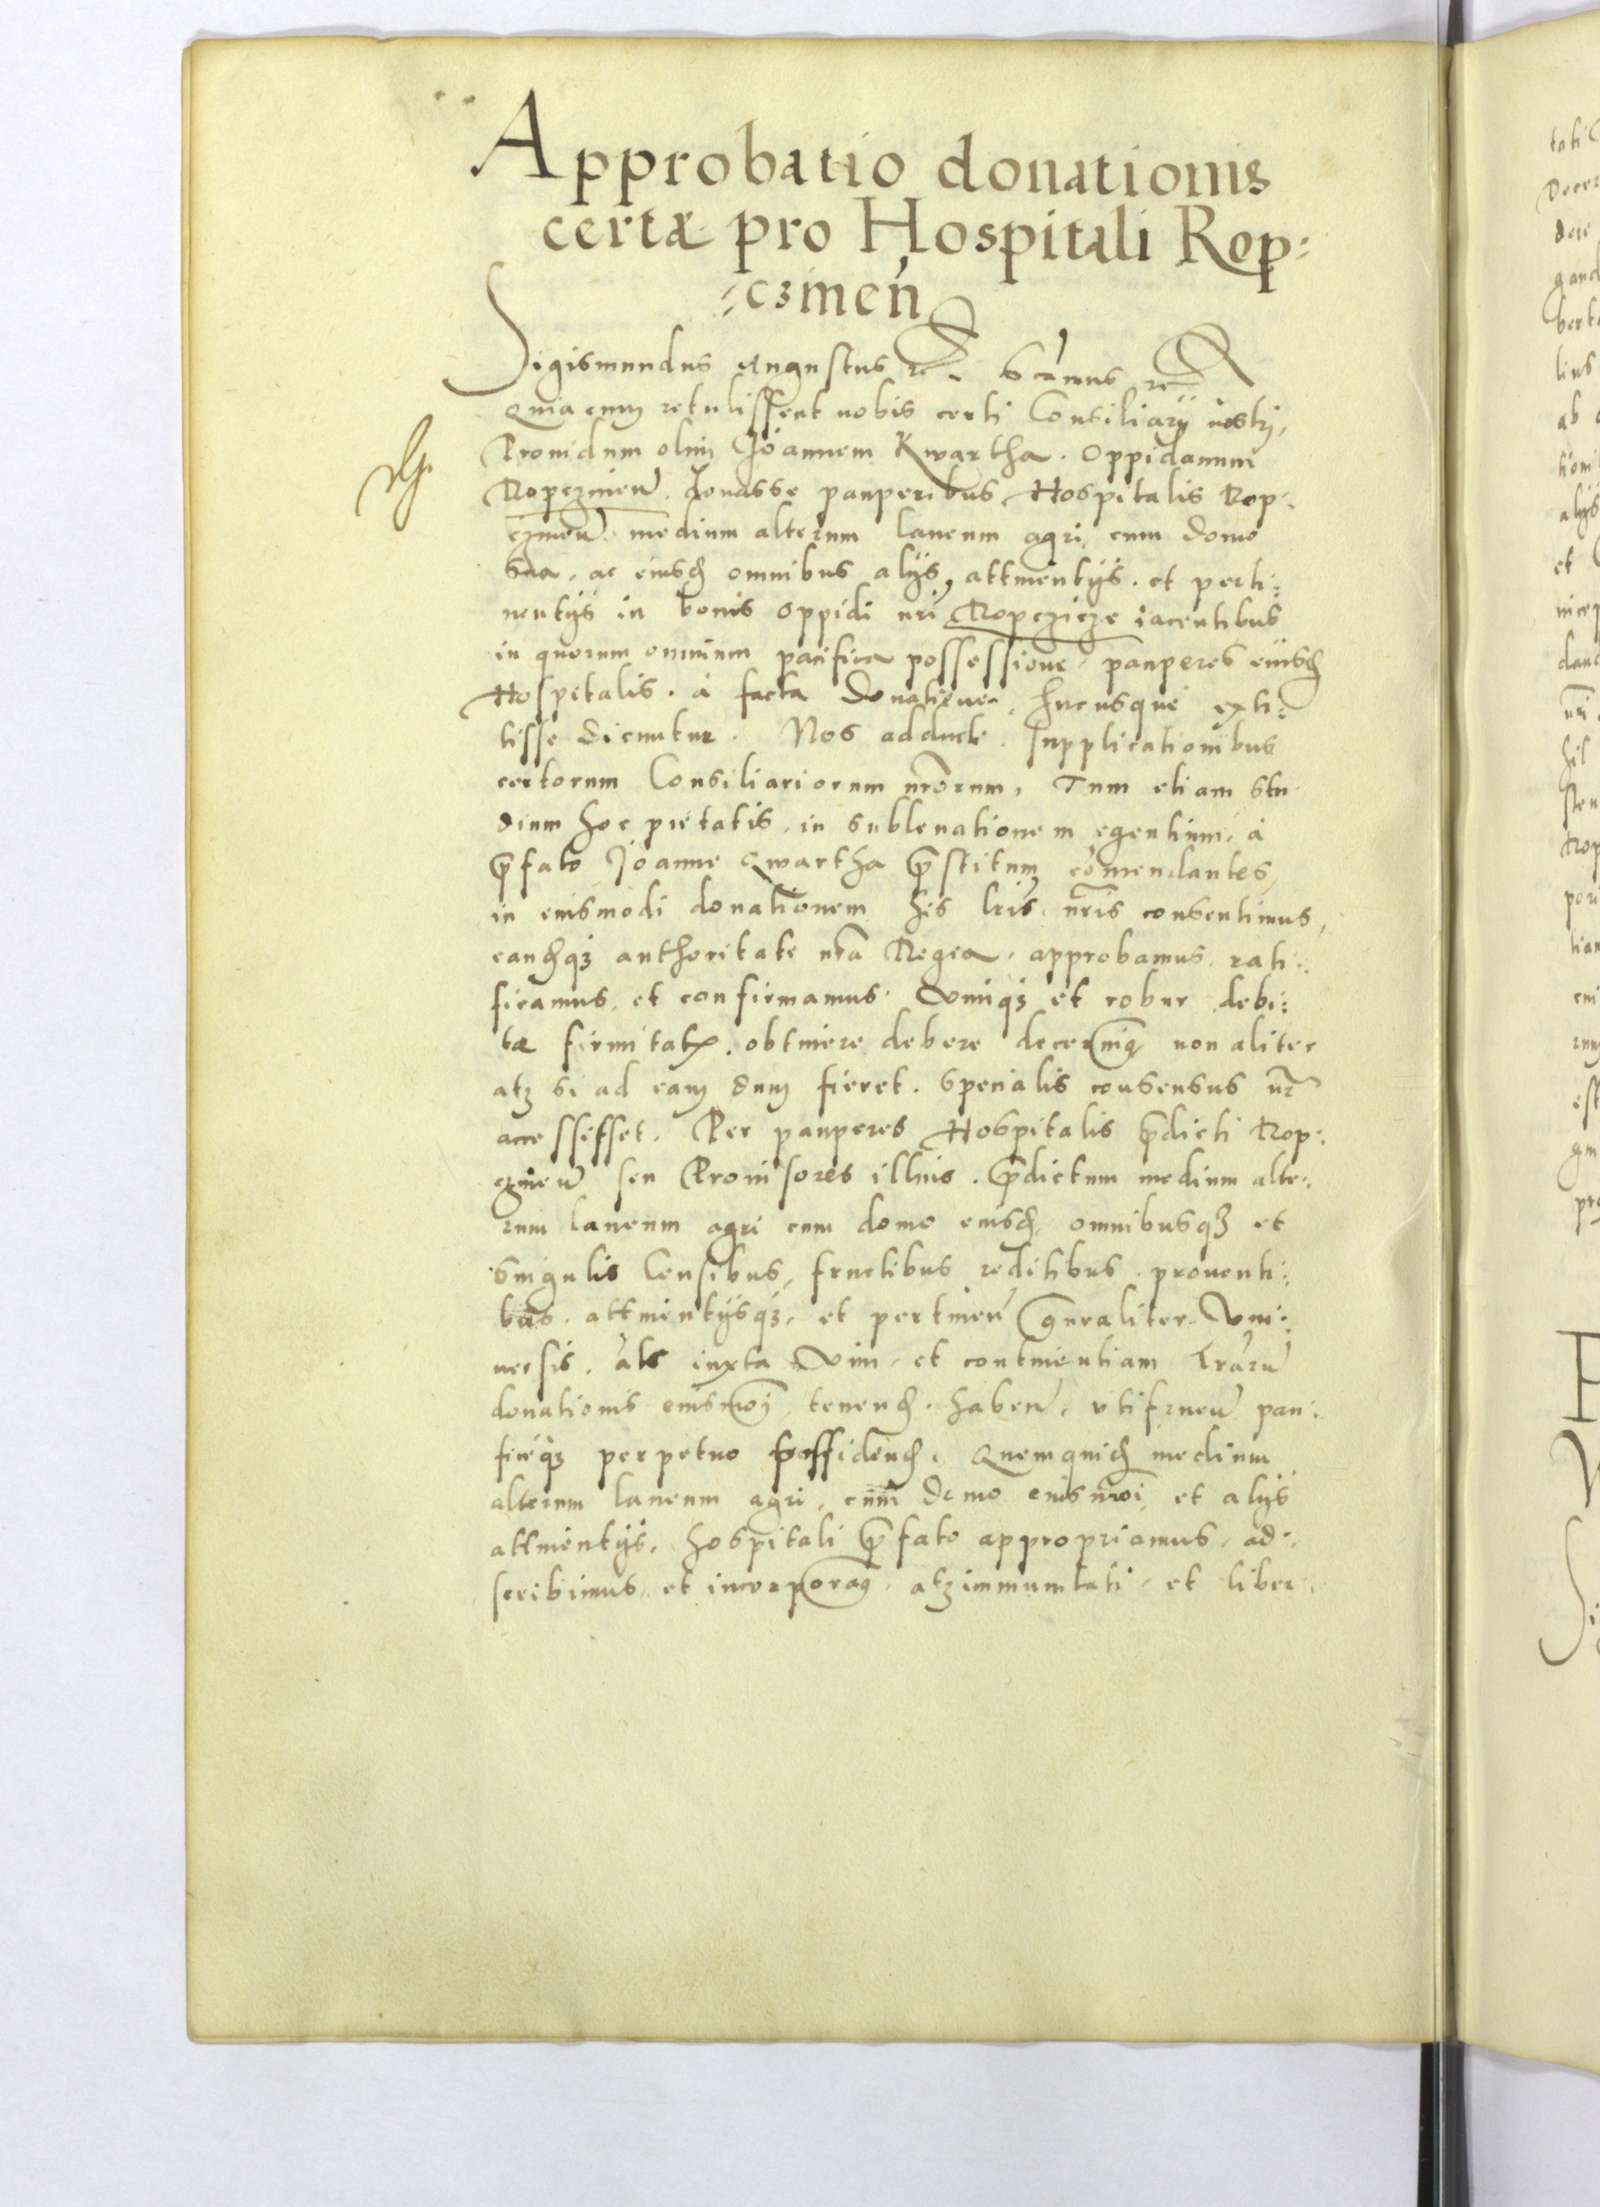 Approbatio donationis
certæ pro Hospitali Rop⸗
⸗czinen̄
Sigismundus Augustus etc. Scimus etc.
Quia cum retulissent nobis certi Consiliarÿ nostri,
Providum olim Joannem Kwartha. Oppidanum
Ropczinen̄. donasse pauperibus Hospitalis Rop⸗
czinen̄. medium alterum laneum agri cum domo
sua, ac eiusd omnibus alÿs, attinentÿs. et perti⸗
nentÿs in bonis oppidi nrī Ropczicze iacentibus
in quorum omnium pacifica possessione, pauperes eiusd
Hospitalis. à facta Donatione, hucusque exti⸗
tisse dicuntur. Nos adducti. supplicationibus
certorum Consiliariorum nrōrum, Tum etiam stu
dium hoc pietatis, in sublevationem egentium, à
p̄fato Joanne Qwartha p̄stitum com̄endantes,
in eiusmodi donationem his lrīs nr̄is consentimus,
eandqꝫ authoritate nrā Regia, approbamus, rati⸗
ficamus, et confirmamus. Vimqꝫ et robur debi⸗
tæ firmitatis. obtinere debere decernimꝰ non aliter
atqꝫ si ad eam dum fieret. specialis consensus nr̄
accessisset. Per pauperes Hospitalis p̄dicti Rop⸗
czinen̄ seu Provisores illius. p̄dictum medium alte⸗
rum laneum agri cum domo eiusd, omnibusqꝫ et
singulis Censibus, fructibus reditibus, proventi⸗
bus. attinentÿsqꝫ, et pertinen̄ gn̄raliter. Vni⸗
versis. als̄ iuxta vim, et continentiam lrārū
donationis eiusmōi, tenend. haben̄, vtifruen̄ paci⸗
ficeqꝫ perpetuo possidend. Quemquid medium
alterum laneum agri, cum domo eiusmōi et alÿs
attinentÿs, hospitali p̄fato appropriamus, ad⸗
scribimus, et incorporamꝰ, atqꝫ immunitati, et liber⸗